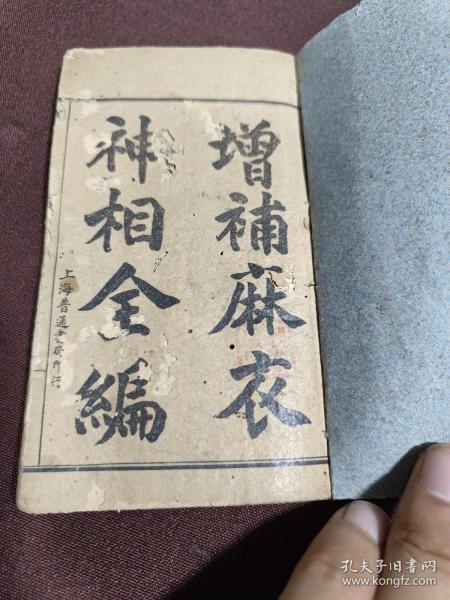 增補麻衣
神相全編
上海普通書局印行
孔夫子旧书网
www.kongfz.com